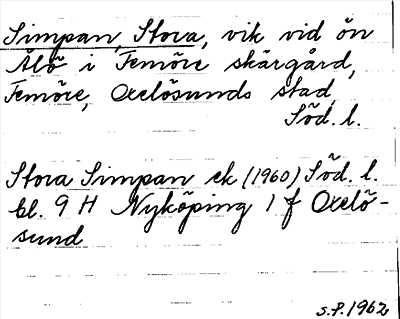 Simpan, Stora, vik vid ön
Ålö i Femöre skärgård,
Femöre, Oxelösunds stad,
Söd. l.
Stora Simpan ek (1960) Söd. l.
bl. 9 H Nyköping 1 f Oxelö-
sund
S.P. 1962